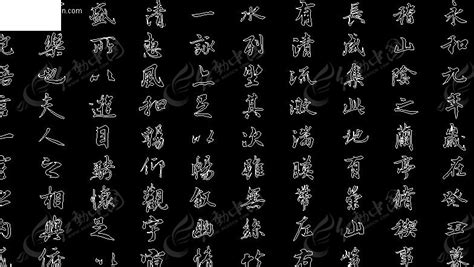 永和九年歲在癸丑暮
稽山陰之蘭亭脩禊事
長咸集此地有崇山峻
有清流激湍暎帶左右
水列坐其次雖無絲竹
一詠亦足以暢敘幽情
清惠風和暢仰觀宇宙
盛所以遊目騁懷足以
樂也夫人之相與俯